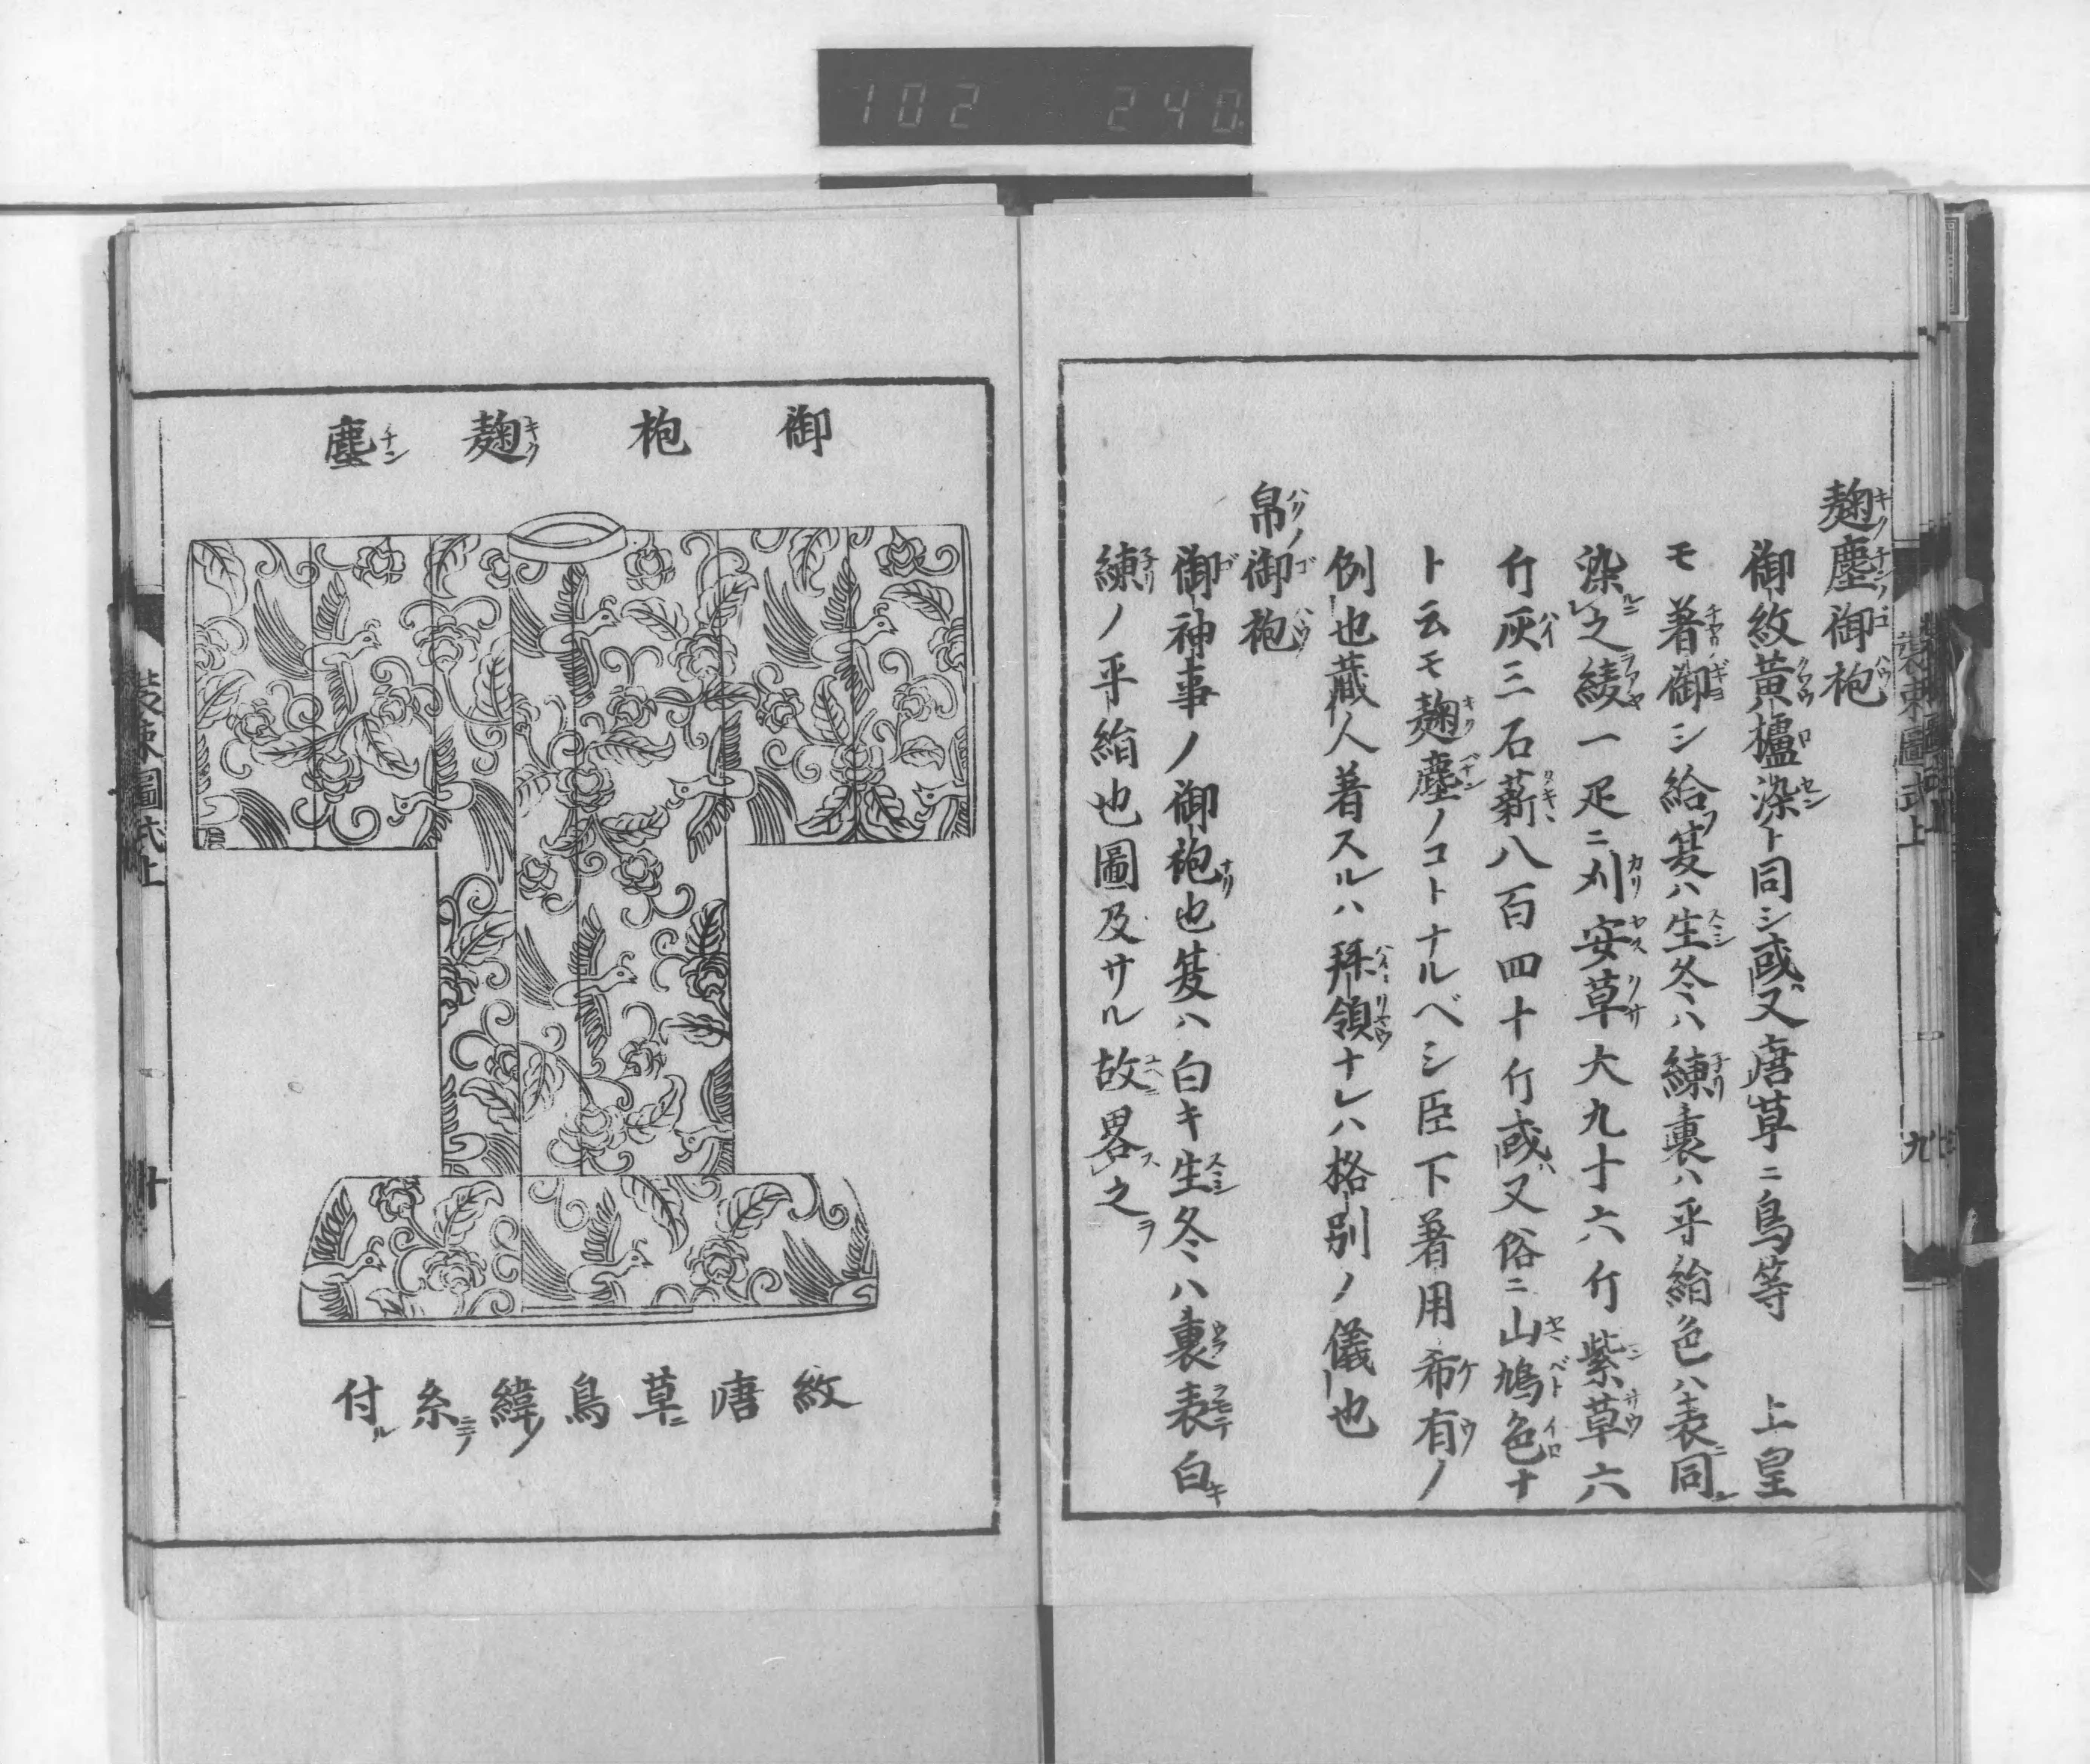 102 240
麹塵御袍
御紋黄櫨染ト同シ或又唐草ニ鳥等 上皇
モ著御シ給フ夏ハ生冬ハ練裏ハ平絹色ハ表ニ同シ
染ルニ之綾一疋ニ刈安草大九十六斤紫草六
斤灰三石薪八百四十斤或ハ又俗ニ山鳩色ナ
ト云モ麹塵ノコトナルベシ臣下著用希有ノ
例也蔵人著スルハ拜領ナレハ格別ノ儀也
帛ノ御袍
御神事ノ御袍也夏ハ白キ生冬ハ裏表白キ
練ノ平絹也圖及サル故畧ス之ヲ
裝束圖式上
九
御袍麹塵
紋唐草ニ鳥緯糸ニテ付ル
裝束圖式上
十